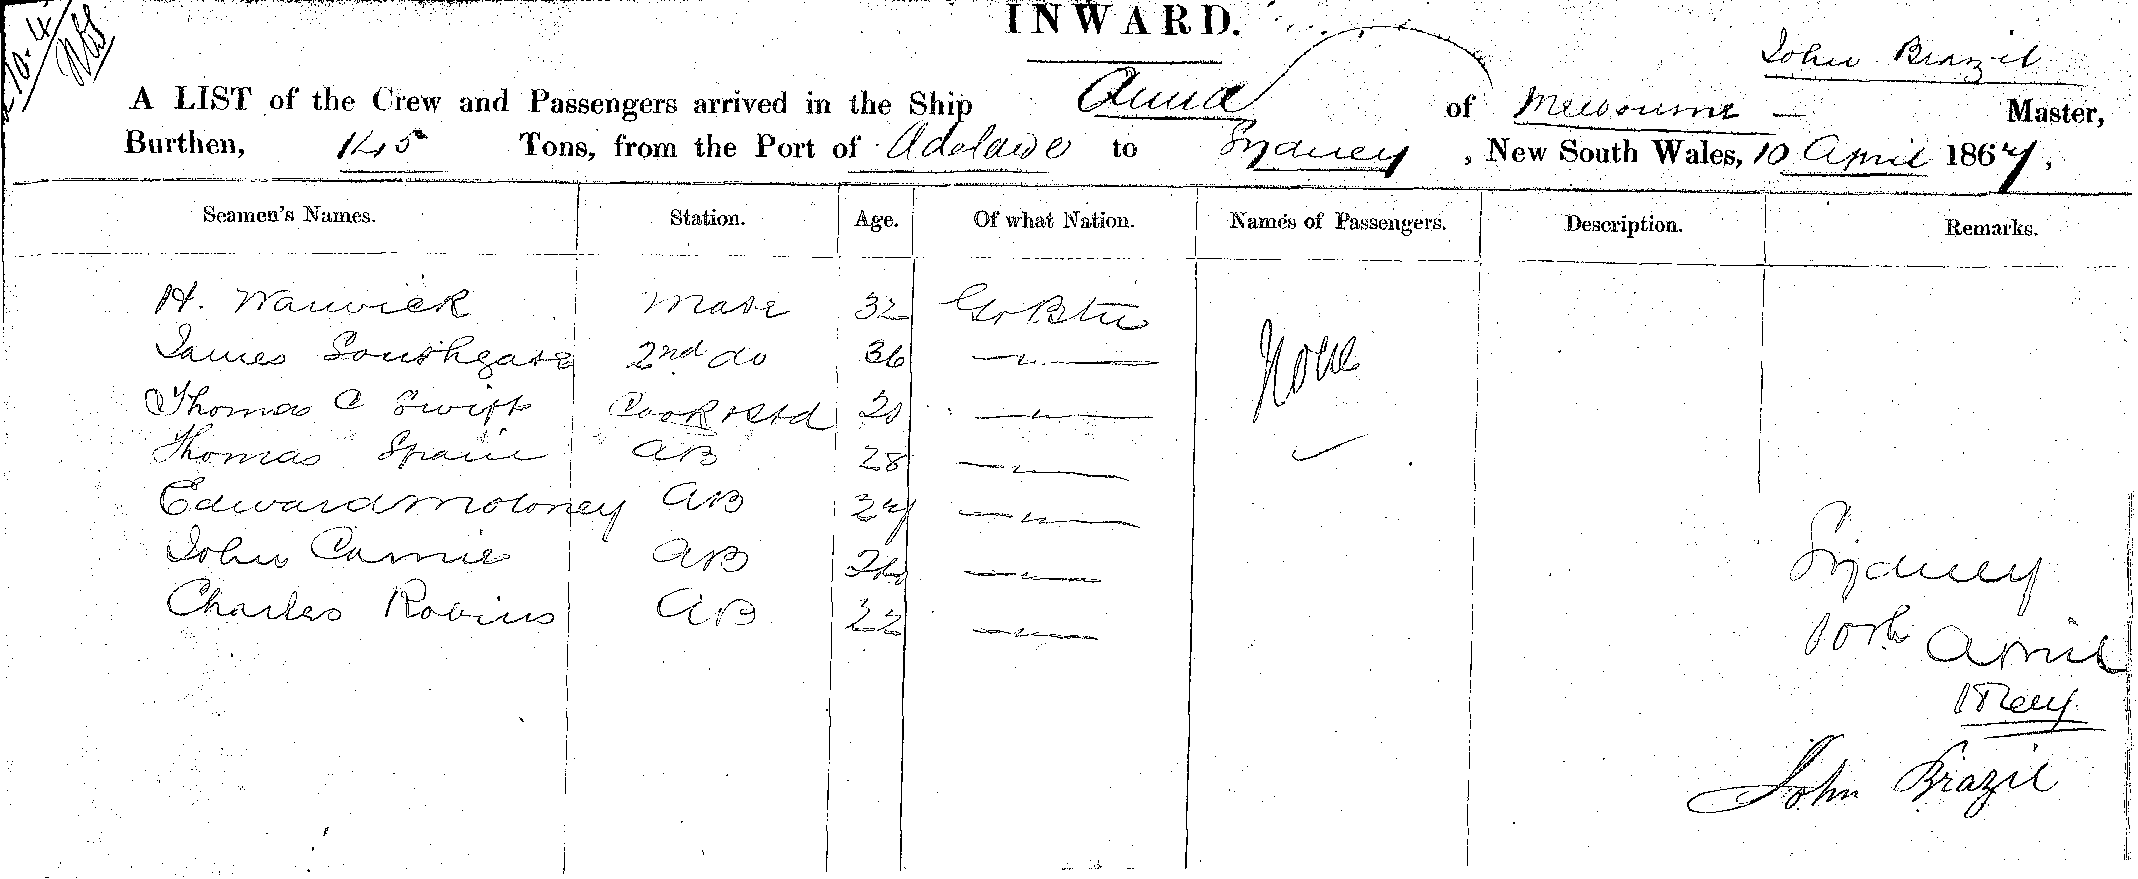 10.4
INWARD.
John Brazil
A LIST of the Crew and Passengers arrived in the Ship Anna of Melbourne — Master,
Burthen, 145 Tons, from the Port of Adelaide to Sydney, New South Wales, 10 April 1867.
Seamen's Names. Station. Age. Of what Nation. Names of Passengers. Description. Remarks.
H. Warwick Mate 32 Gt Btn
James Southgate 2nd do 36 — " — None
Thomas C Swift Cook & Std 20 — " —
Thomas Spain AB 28 — " —
Edward Moloney AB 24 — " —
John Carnie AB 26 — " —
Charles Robins AB 22 — " —
Sydney
10th April
John Brazil